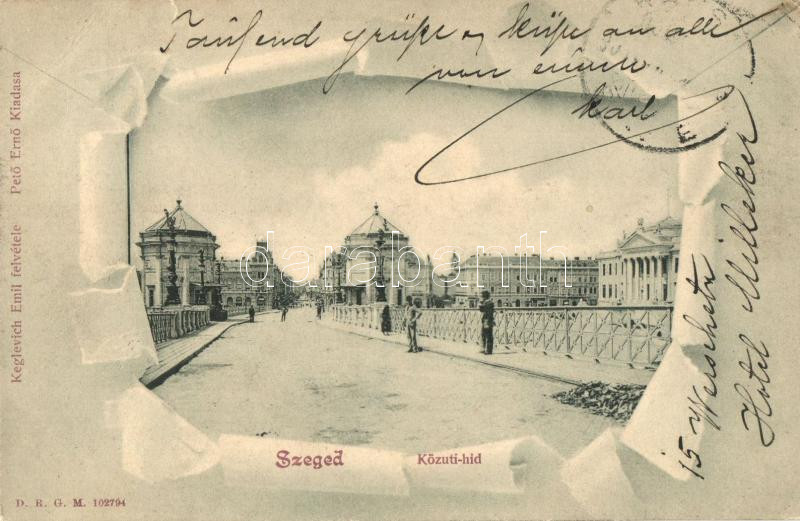 Tausend grüße u. küße an alle
von eurem
Karl
Keglevich Emil felvétele Pető Ernő Kiadasa
darabanth
15 Werschetz
Hotel Milleker
Szeged Közuti-hid
D. R. G. M. 102794